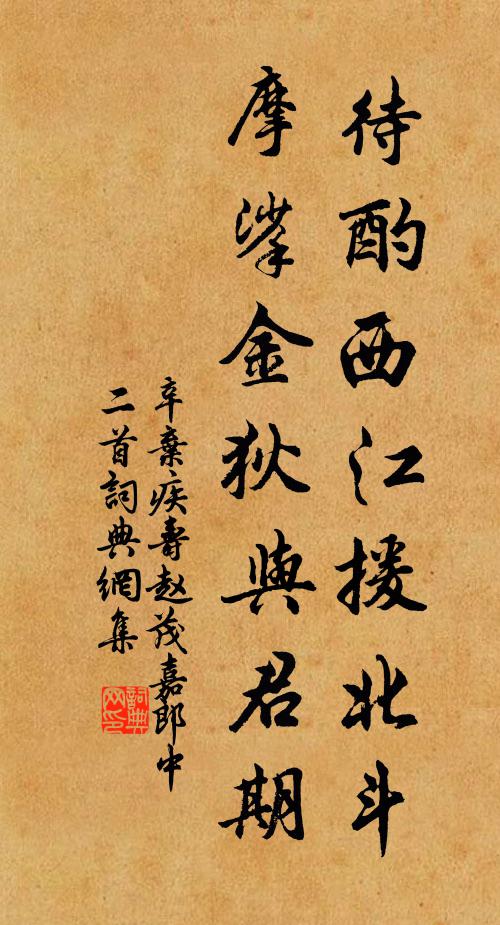 待酌西江援北斗
摩挲金狄與君期
辛棄疾壽赵茂嘉郎中
二首詞典網集
詞典网印